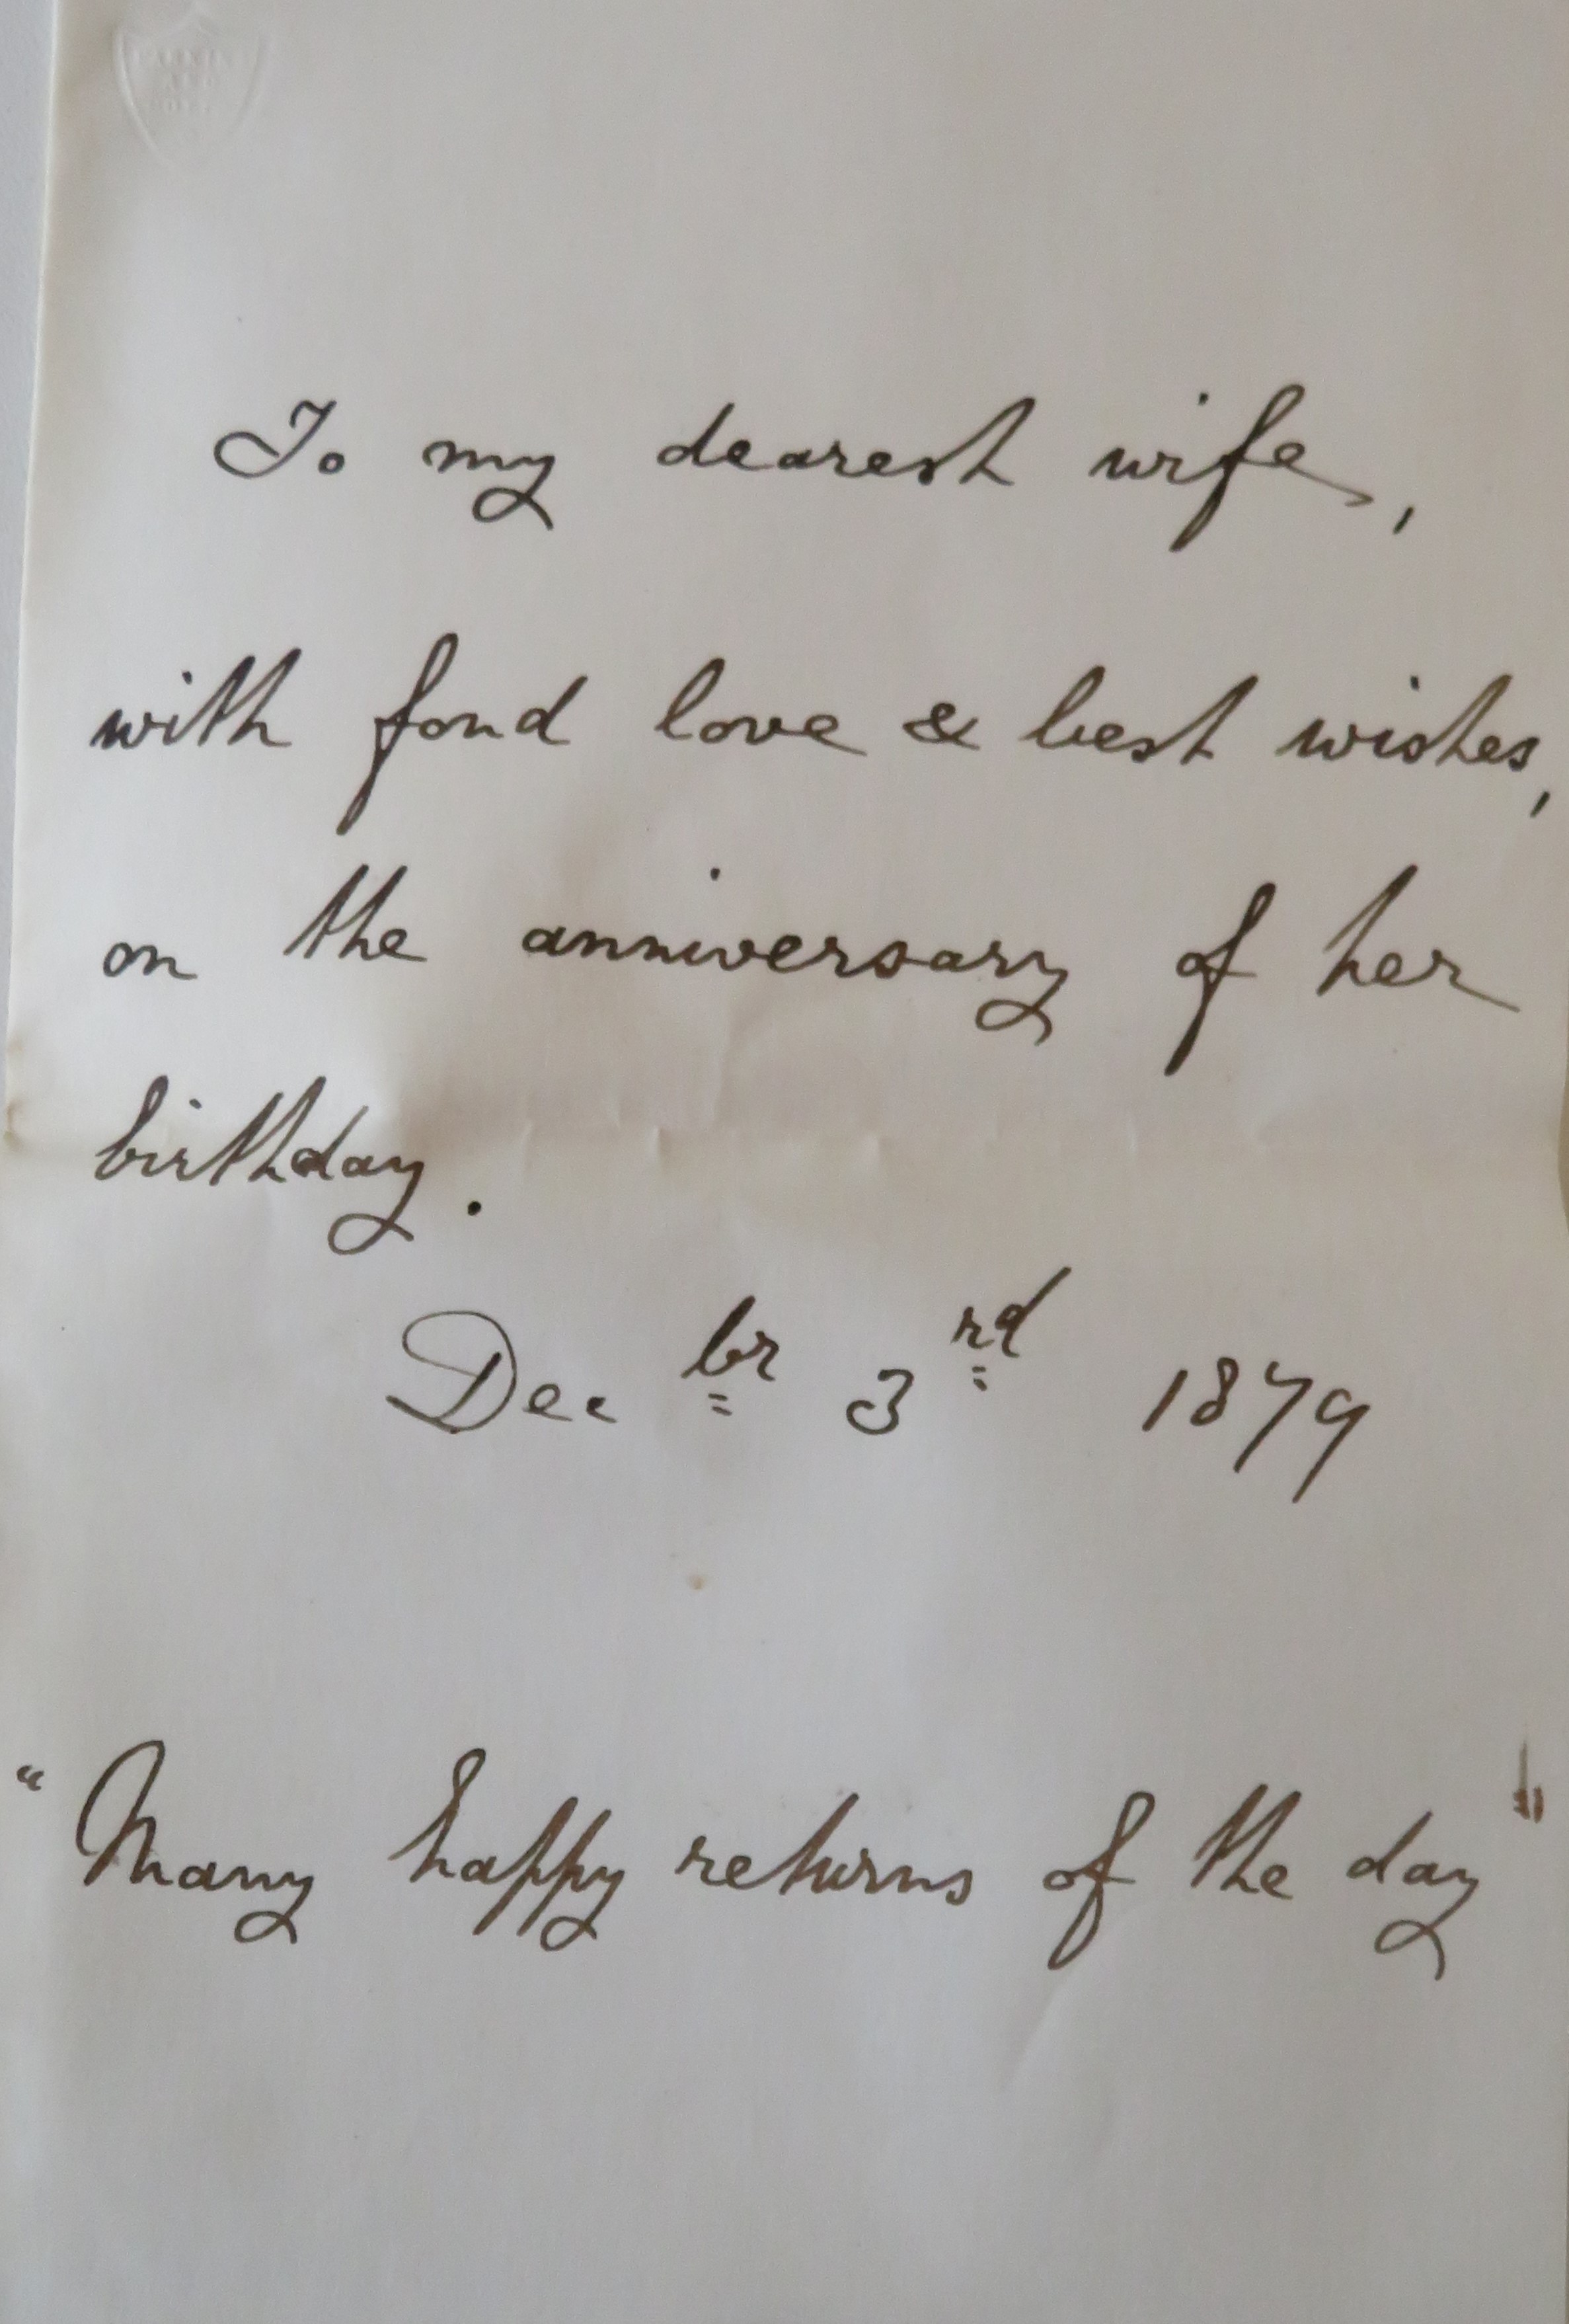 To my dearest wife,
with fond love & best wishes,
on the anniversary of her
birthday.
Dec br 3 rd 1879
"Many happy returns of the day"